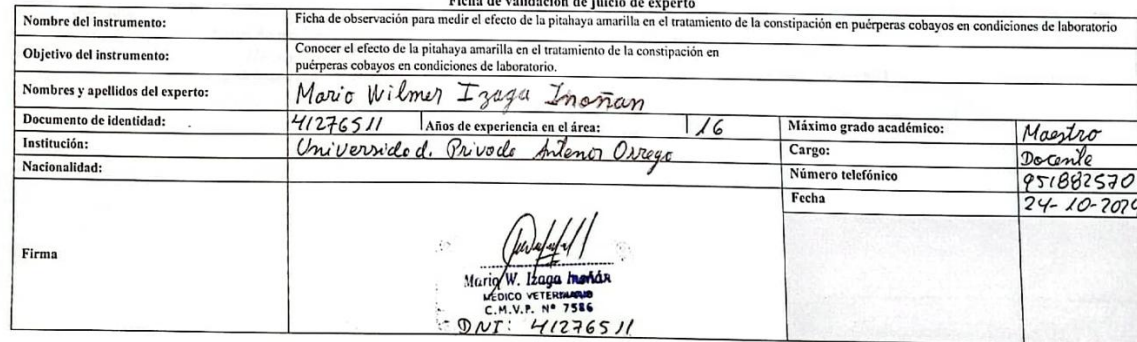 Ficha de validación de juicio de experto
Nombre del instrumento: Ficha de observación para medir el efecto de la pitahaya amarilla en el tratamiento de la constipación en puérperas cobayos en condiciones de laboratorio
Objetivo del instrumento: Conocer el efecto de la pitahaya amarilla en el tratamiento de la constipación en
puérperas cobayos en condiciones de laboratorio.
Nombres y apellidos del experto: Mario Wilmer Izaga Inoñan
Documento de identidad: 41276511 Años de experiencia en el área: 16 Máximo grado académico: Maestro
Institución: Universidad. Privada Antenor Orrego Cargo: Docente
Nacionalidad: Número telefónico 951882570
Fecha 24-10-2024
Firma
Mario W. Izaga Inoñán
MÉDICO VETERINARIO
C.M.V.P. N° 7586
DNI: 41276511